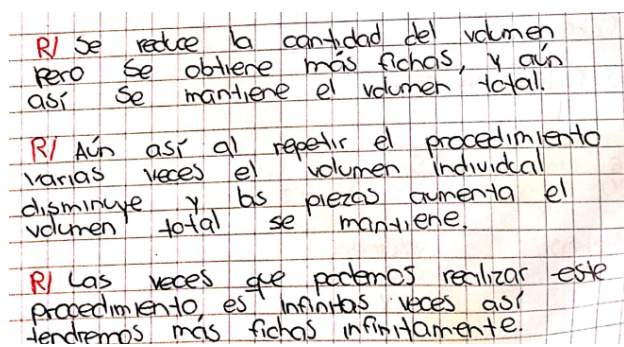 R/ Se reduce la cantidad del volumen
pero se obtiene más fichas, y aún
así se mantiene el volumen total.
R/ Aún así al repetir el procedimiento
varias veces el volumen individual
disminuye y las piezas aumenta el
volumen total se mantiene.
R/ Las veces que podemos realizar este
procedimiento es infinitas veces así
tendremos más fichas infinitamente.